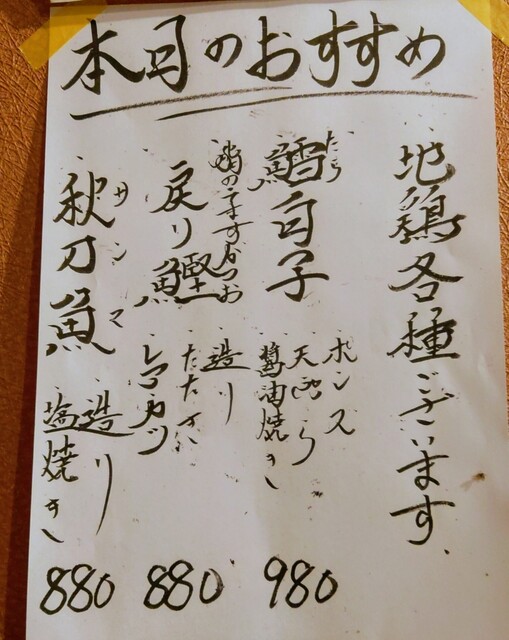 本日のおすすめ
地鶏各種ございます、
たら
鱈白子
ポンズ
天ぷら
醤油焼き
980
戻り鰹
造り
たたき
レアカツ
880
サンマ
秋刀魚
造り
塩焼き
880